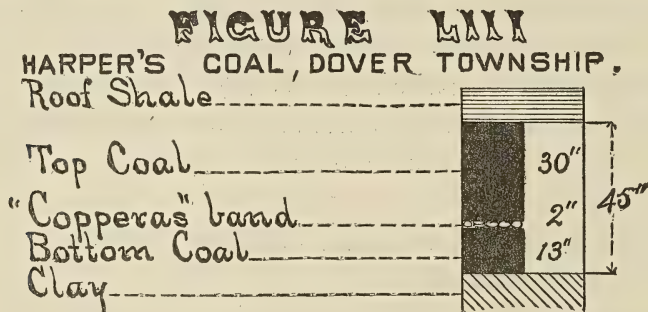 FIGURE LIII
HARPER'S COAL, DOVER TOWNSHIP.
Roof Shale
Top Coal 30"
"Copperas" band 2" 45"
Bottom Coal 13"
Clay